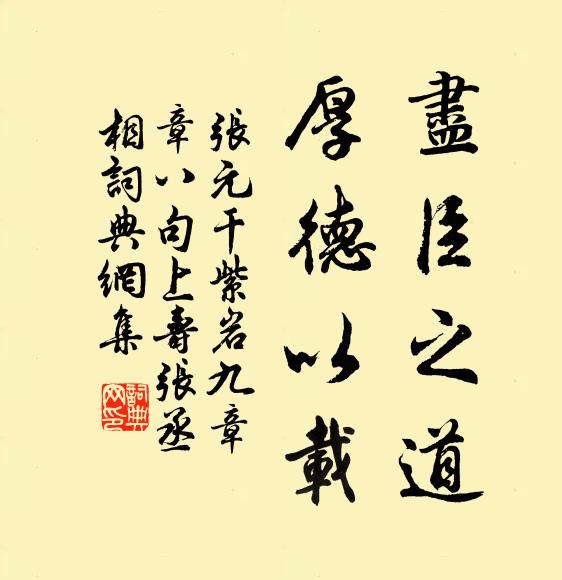 盡臣之道
厚德以載
張元干紫岩九章
章八句上壽張丞
相詞典網集
詞典
网印